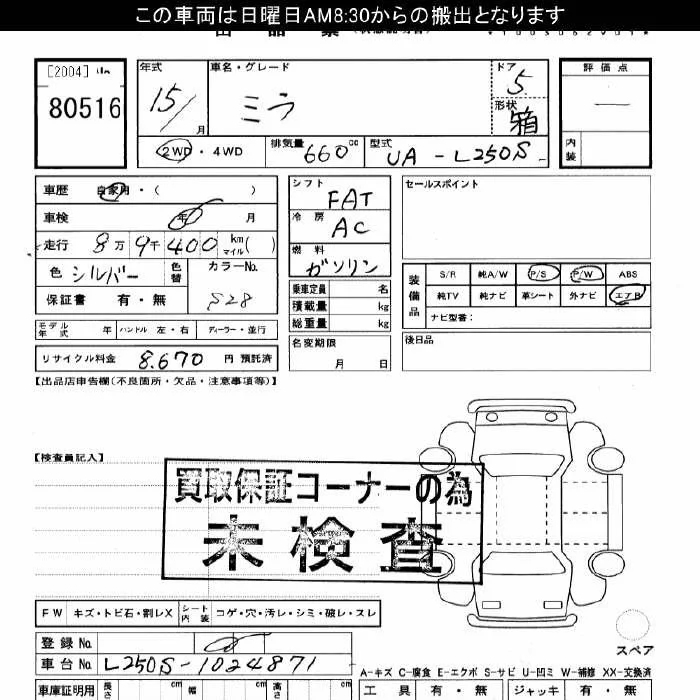 この車両は日曜日AM8:30からの搬出となります
[2004]
80516
年式 車名・グレード ドア 評価点
15/ 月 ミラ 5
形状 箱 内装
2WD・4WD 排気量 660cc 型式 UA-L250S
車歴 自家用・( )
車検 年 月
走行 8万9千400 km マイル( )
色 シルバー 色替 カラーNo. S28
保証書 有・無
シフト FAT
冷房 AC
燃料 ガソリン
乗車定員 名
積載量 kg
総重量 kg
名変期限 月 日
セールスポイント
装備品 S/R 純A/W P/S P/W ABS
純TV 純ナビ 革シート 外ナビ エアB
ナビ型番:
後日品
モデル年式 年 ハンドル 左・右 ディーラー・並行
リサイクル料金 8.670 円 預託済
【出品店申告欄(不良箇所・欠品・注意事項等)】
【検査員記入】
買取保証コーナーの為
未検査
FW キズ・トビ石・割レX シート内装 コゲ・穴・汚レ・シミ・破レ・スレ
登録No.
車台No. L250S-1024871
スペア
A-キズ C-腐食 E-エクボ S-サビ U-凹ミ W-補修 XX-交換済
車庫証明用 長さ cm 幅 cm 高さ cm
工具 有・無 ジャッキ 有・無